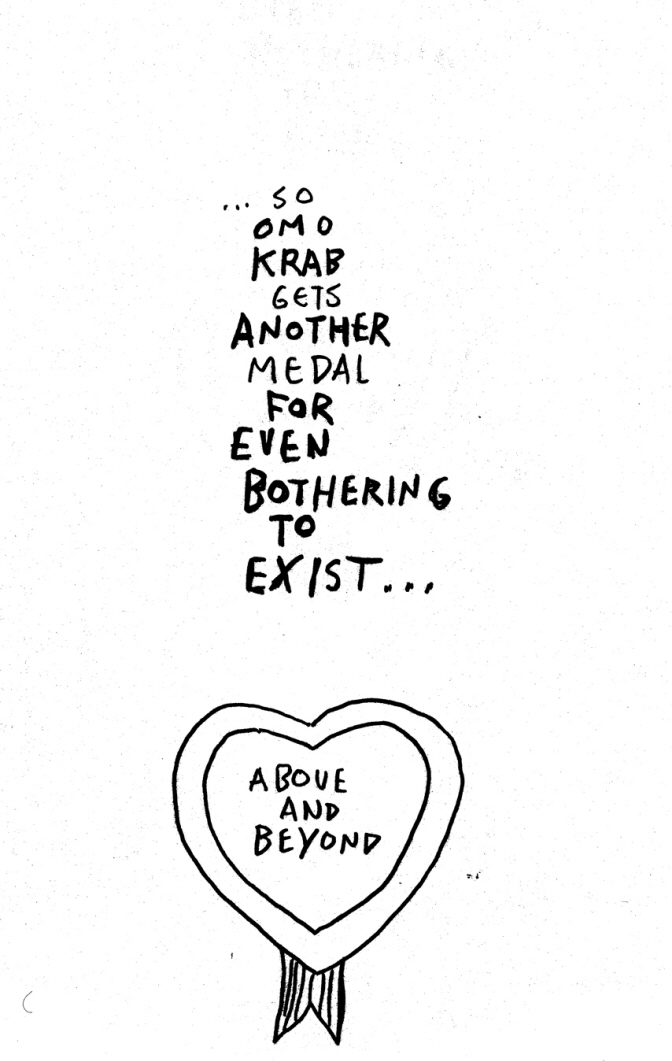 ... SO
OMO
KRAB
GETS
ANOTHER
MEDAL
FOR
EVEN
BOTHERING
TO
EXIST...
ABOVE
AND
BEYOND